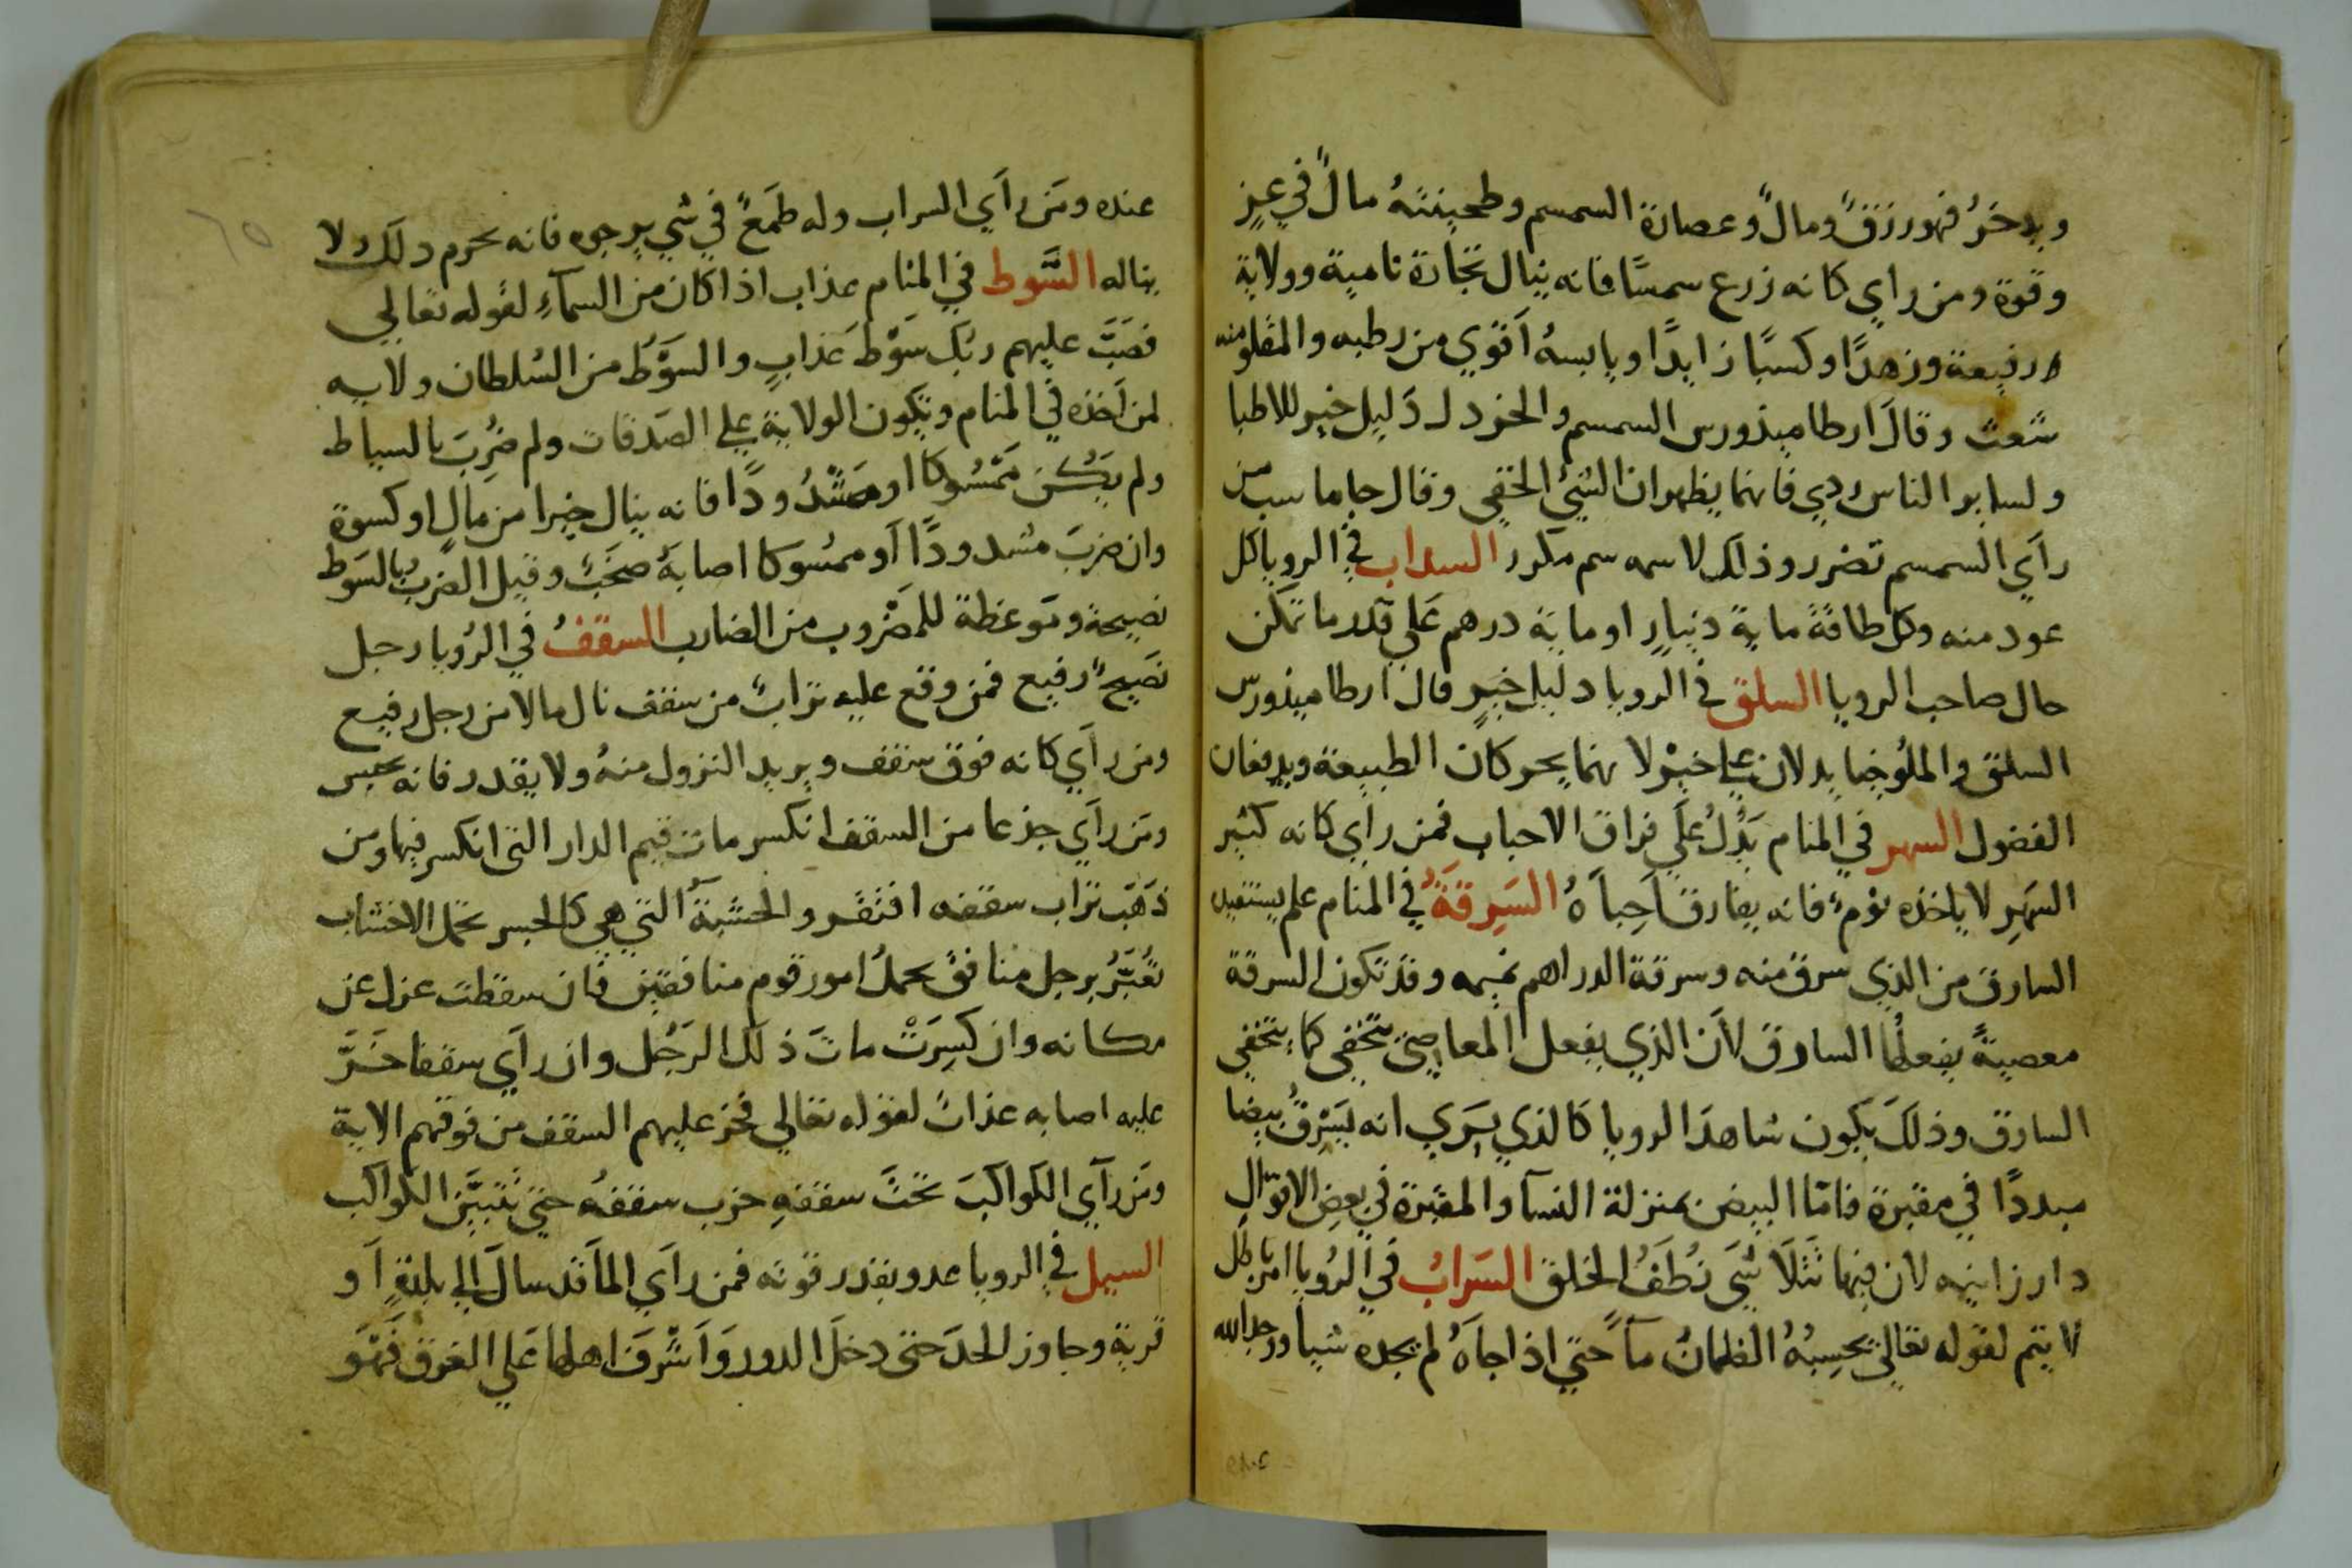 ويدخرُ فهو رزقٌ ومالٌ وعصارة السمسم وطحينته مالٌ في عزٍ
وقوة ومن راي كانه زرع سمسمًا فانه ينال تجارة نامية وولاية
رفيعة وزهدًا وكسبًا زايدًا ويابسهُ أقوي من رطبه والمقلو منه
شعث وقال ارطاميذورس السمسم والخردل دليل خير للاطبا
ولساير الناس ردي فانهما يظهران الشئ الخفي وقال جاماسب من
رأي السمسم تضرر وذلك لاسمه سم مكرر السداب في الرويا كل
عود منه وكل طاقة ماية دينار او ماية درهم علي قدر ما تمكن
حال صاحب الرويا السلق في الرويا دليل خيرٍ قال ارطاميذورس
السلق والملوخيا يدلان علي خير لانهما يحركان الطبيعة ويدفعان
الفضول السهر في المنام يدُلُ علي فراق الاحباب فمن راي كانه كثير
السهرِ لا ياخذه نومٌ فانه يفارق أحباَهُ السَرِقَةُ في المنام علم يستفيده
السارق من الذي سرق منه وسرقة الدراهم نميمه وقد تكون السرقة
معصيةً يفعلُها السارق لأن الذي يفعل المعاصي يتخفي كما يتخفي
السارق وذلكَ يكون شاهدَ الرويا كالذي يَري انه يَسْرقُ بيضا
مبددًا في مقبرة فامّا البيض بمنزلة النسآ والمقبرة في بعض الاقوال
دار زانيه لان فيها تَتَلَاشَي نُطَفُ الخلق السَرابُ في الرُويا امر باطل
لا يتم لقوله تعالي يحسِبُهُ الظمانُ مآً حتي اذا جاَهُ لم يجده شيأ ووجد الله
عنده ومَن رأي السراب وله طَمَعٌ في شي يرجوه فانه يحرم ذلك ولا
يناله السَّوط في المنام عذاب اذا كان من السمآءِ لقوله تعالي
فصَبَّ عليهم ربك سَوْط عَذابٍ والسَوْط من السُلطان ولايه
لمن أخذه في المنام وتكون الولاية علي الصَدقات ولم ضُرِبَ بالسياط
ولم يَكُن مَمْسُوكا او مَشْدُودًا فانه ينال خيرا من مالٍ او كسوة
وان ضربَ مشدودًا أو ممسوكا اصابهُ صخَبٌ وقيل الضرب بالسَوط
نصيحة ومَوعظة للمَضْروب من الضارب السقفُ في الرُويا رجل
نصيحٌ رفيع فمن وقع عليه ترابٌ من سقف نال مالا من رجل رفيع
ومَن رأي كانه فوق سقف ويريد النزول منهُ ولا يقدر فانه يحبس
ومَن رأَي جذعا من السقف انكسر مات قيم الدار التي انكسر فيها ومن
ذَهَبَ تراب سقفه افتقر والخشبةُ التي هي كالجسر تحمل الاخشاب
تُعبَّرُ برجل منافق يحملُ امور قوم منافقين فان سقطت عزل عن
مكانه وان كسِرَتْ ماتَ ذلك الرَجُل وان رأَي سقفا خَرَّ
عليه اصابه عذابٌ لقوله تعالي فخر عليهم السقف من فوقهم الاية
ومَن رأي الكواكبَ تحتَ سقفهِ خرب سقفهُ حتي تتبيَّن الكواكب
السيل في الرويا عدو بقدر قوته فمن رأي المآ قد سالَ الي بلدةٍ أو
قرية وجاوز الحدَ حتي دخلَ الدور وَاَشْرفَ اهلها عَلي الغرق فَهْوَ